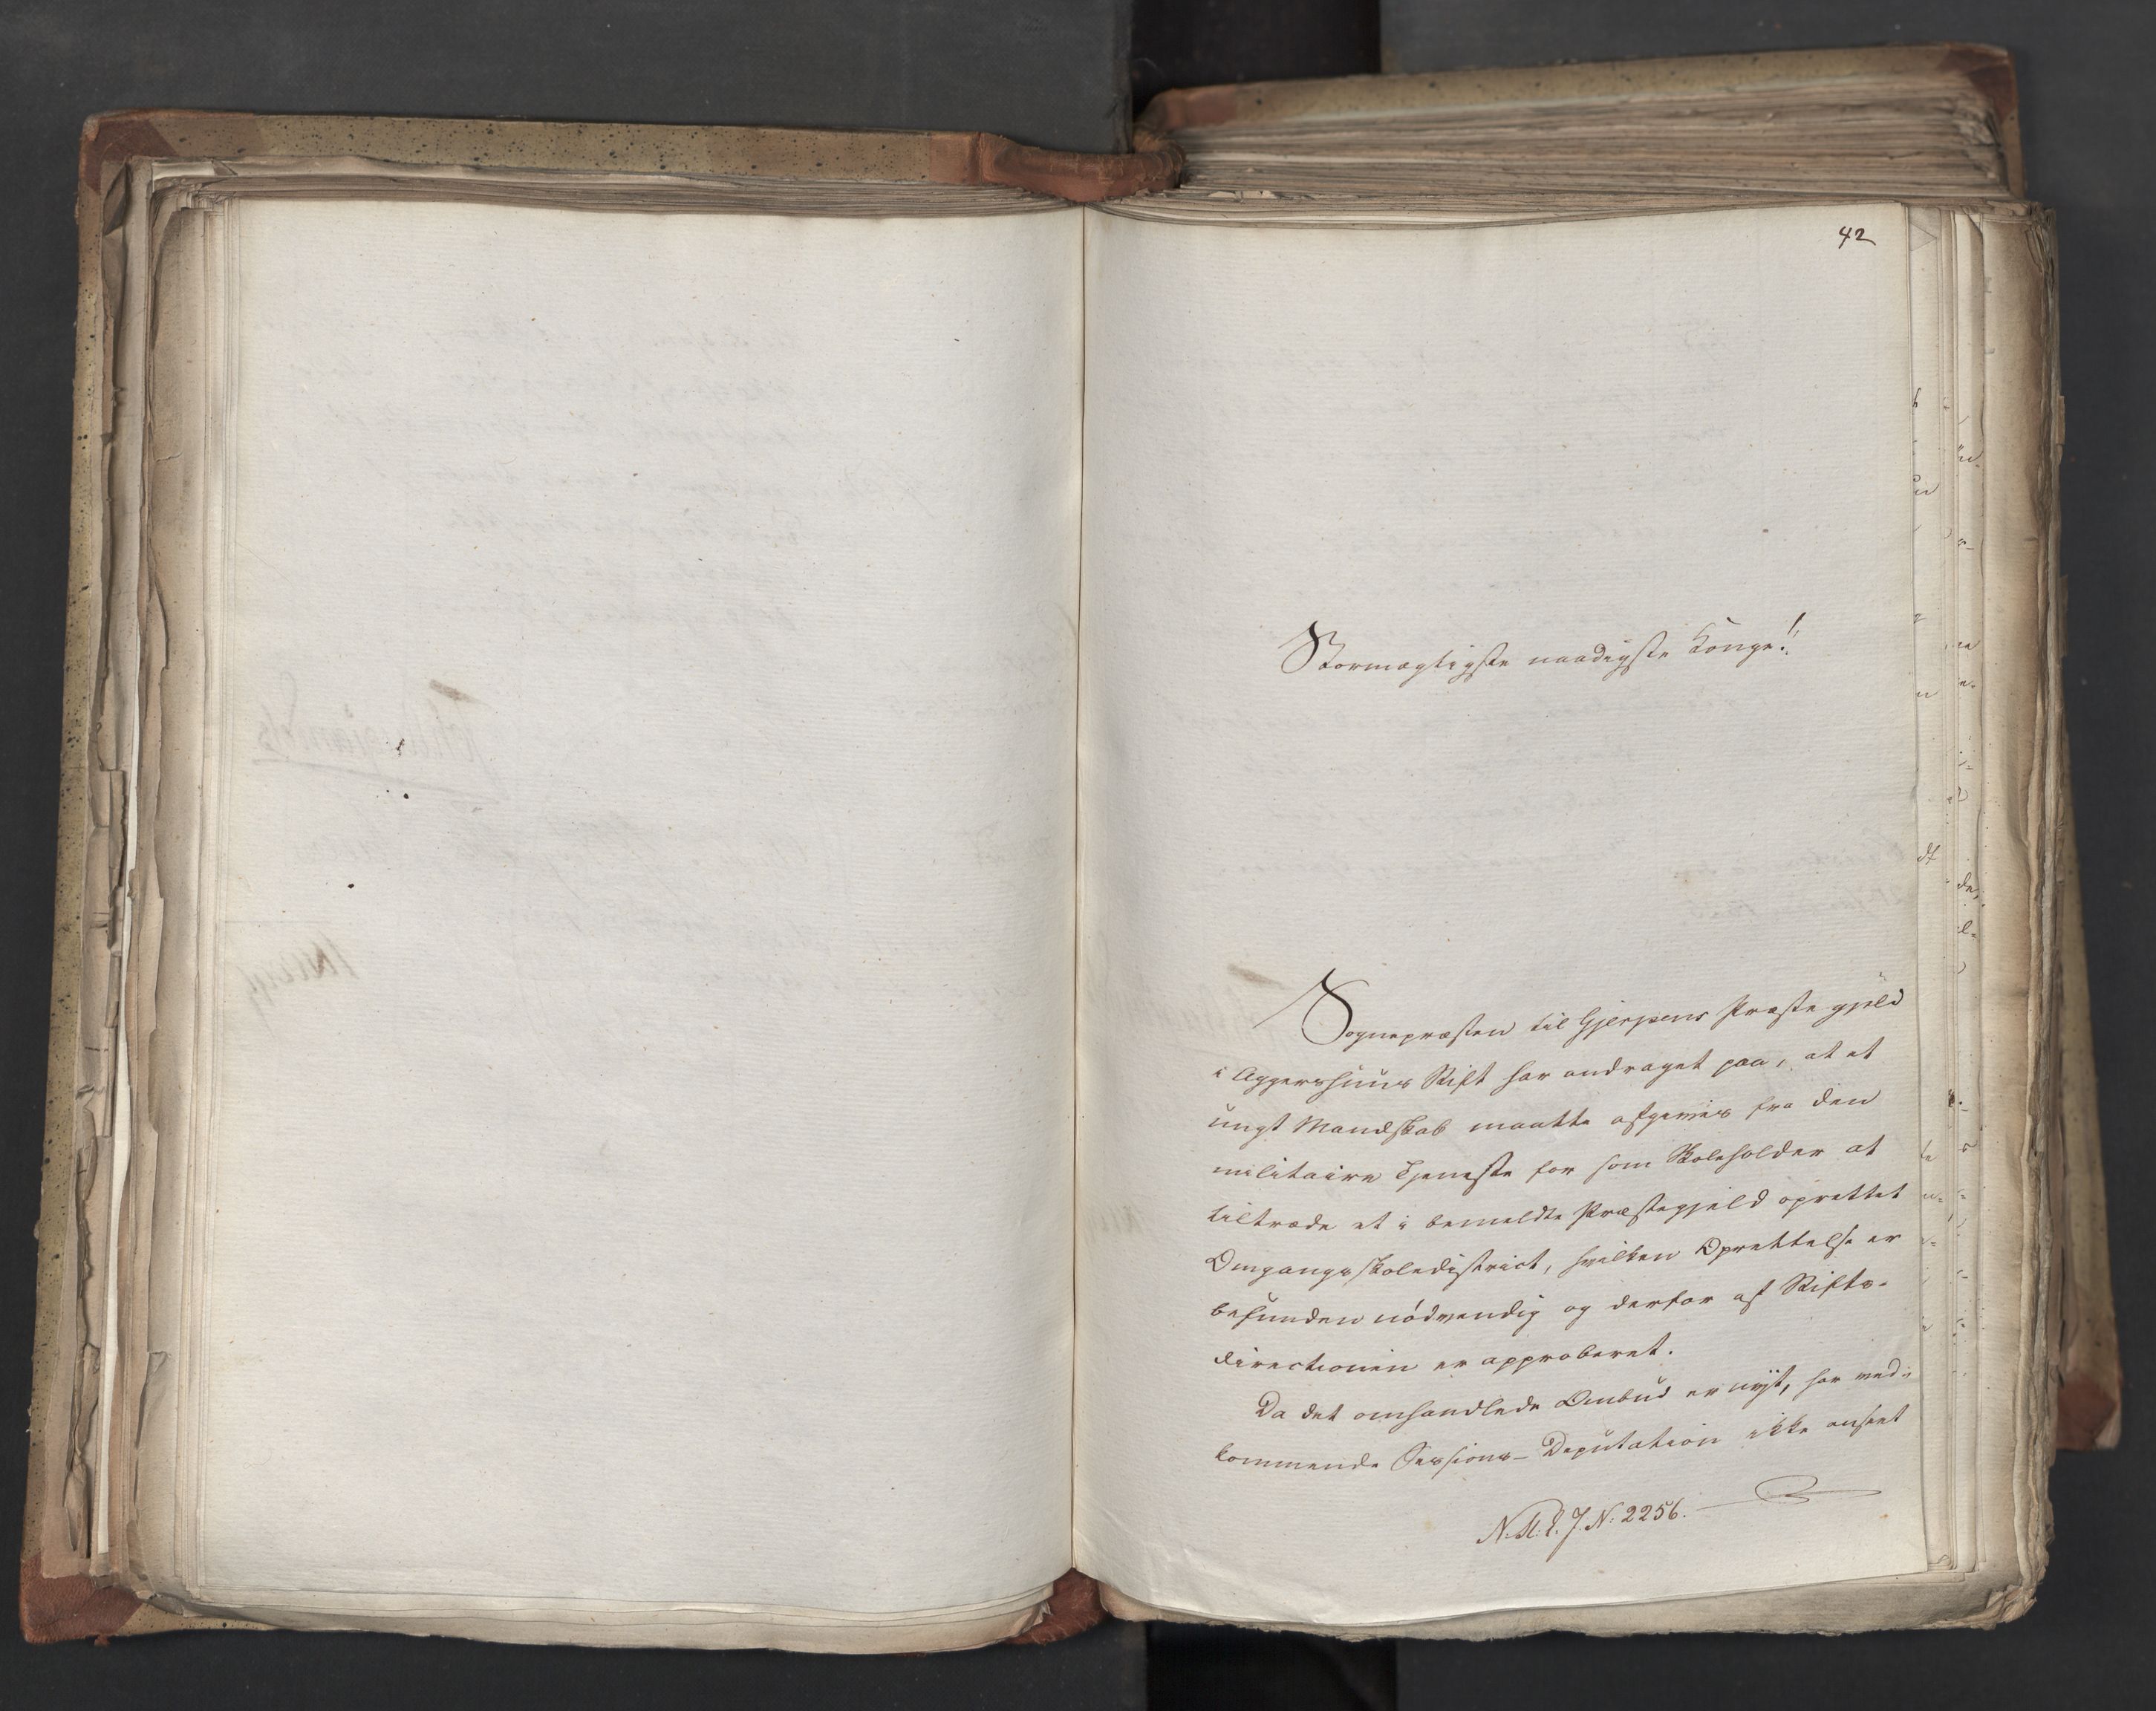 42
Stormægtigste naadigste Konge!
Sognepræsten til Gjerpens Præstegjeld
i Aggershuus Stift har andraget paa, at et
ungt Mandskab maatte afgives fra den
militaire Tjeneste for som Skoleholder at
tiltræde et i bemeldte Præstegjeld oprettet
Omgangsskoledistrict, hvilken Oprettelse er
befunden nödvendig og derfor af Stifts-
directionen er approberet.
Da det omhandlede Ombud er nyt, har ved-
kommende Sessions-Deputation ikke anseet
J. N: 2256.